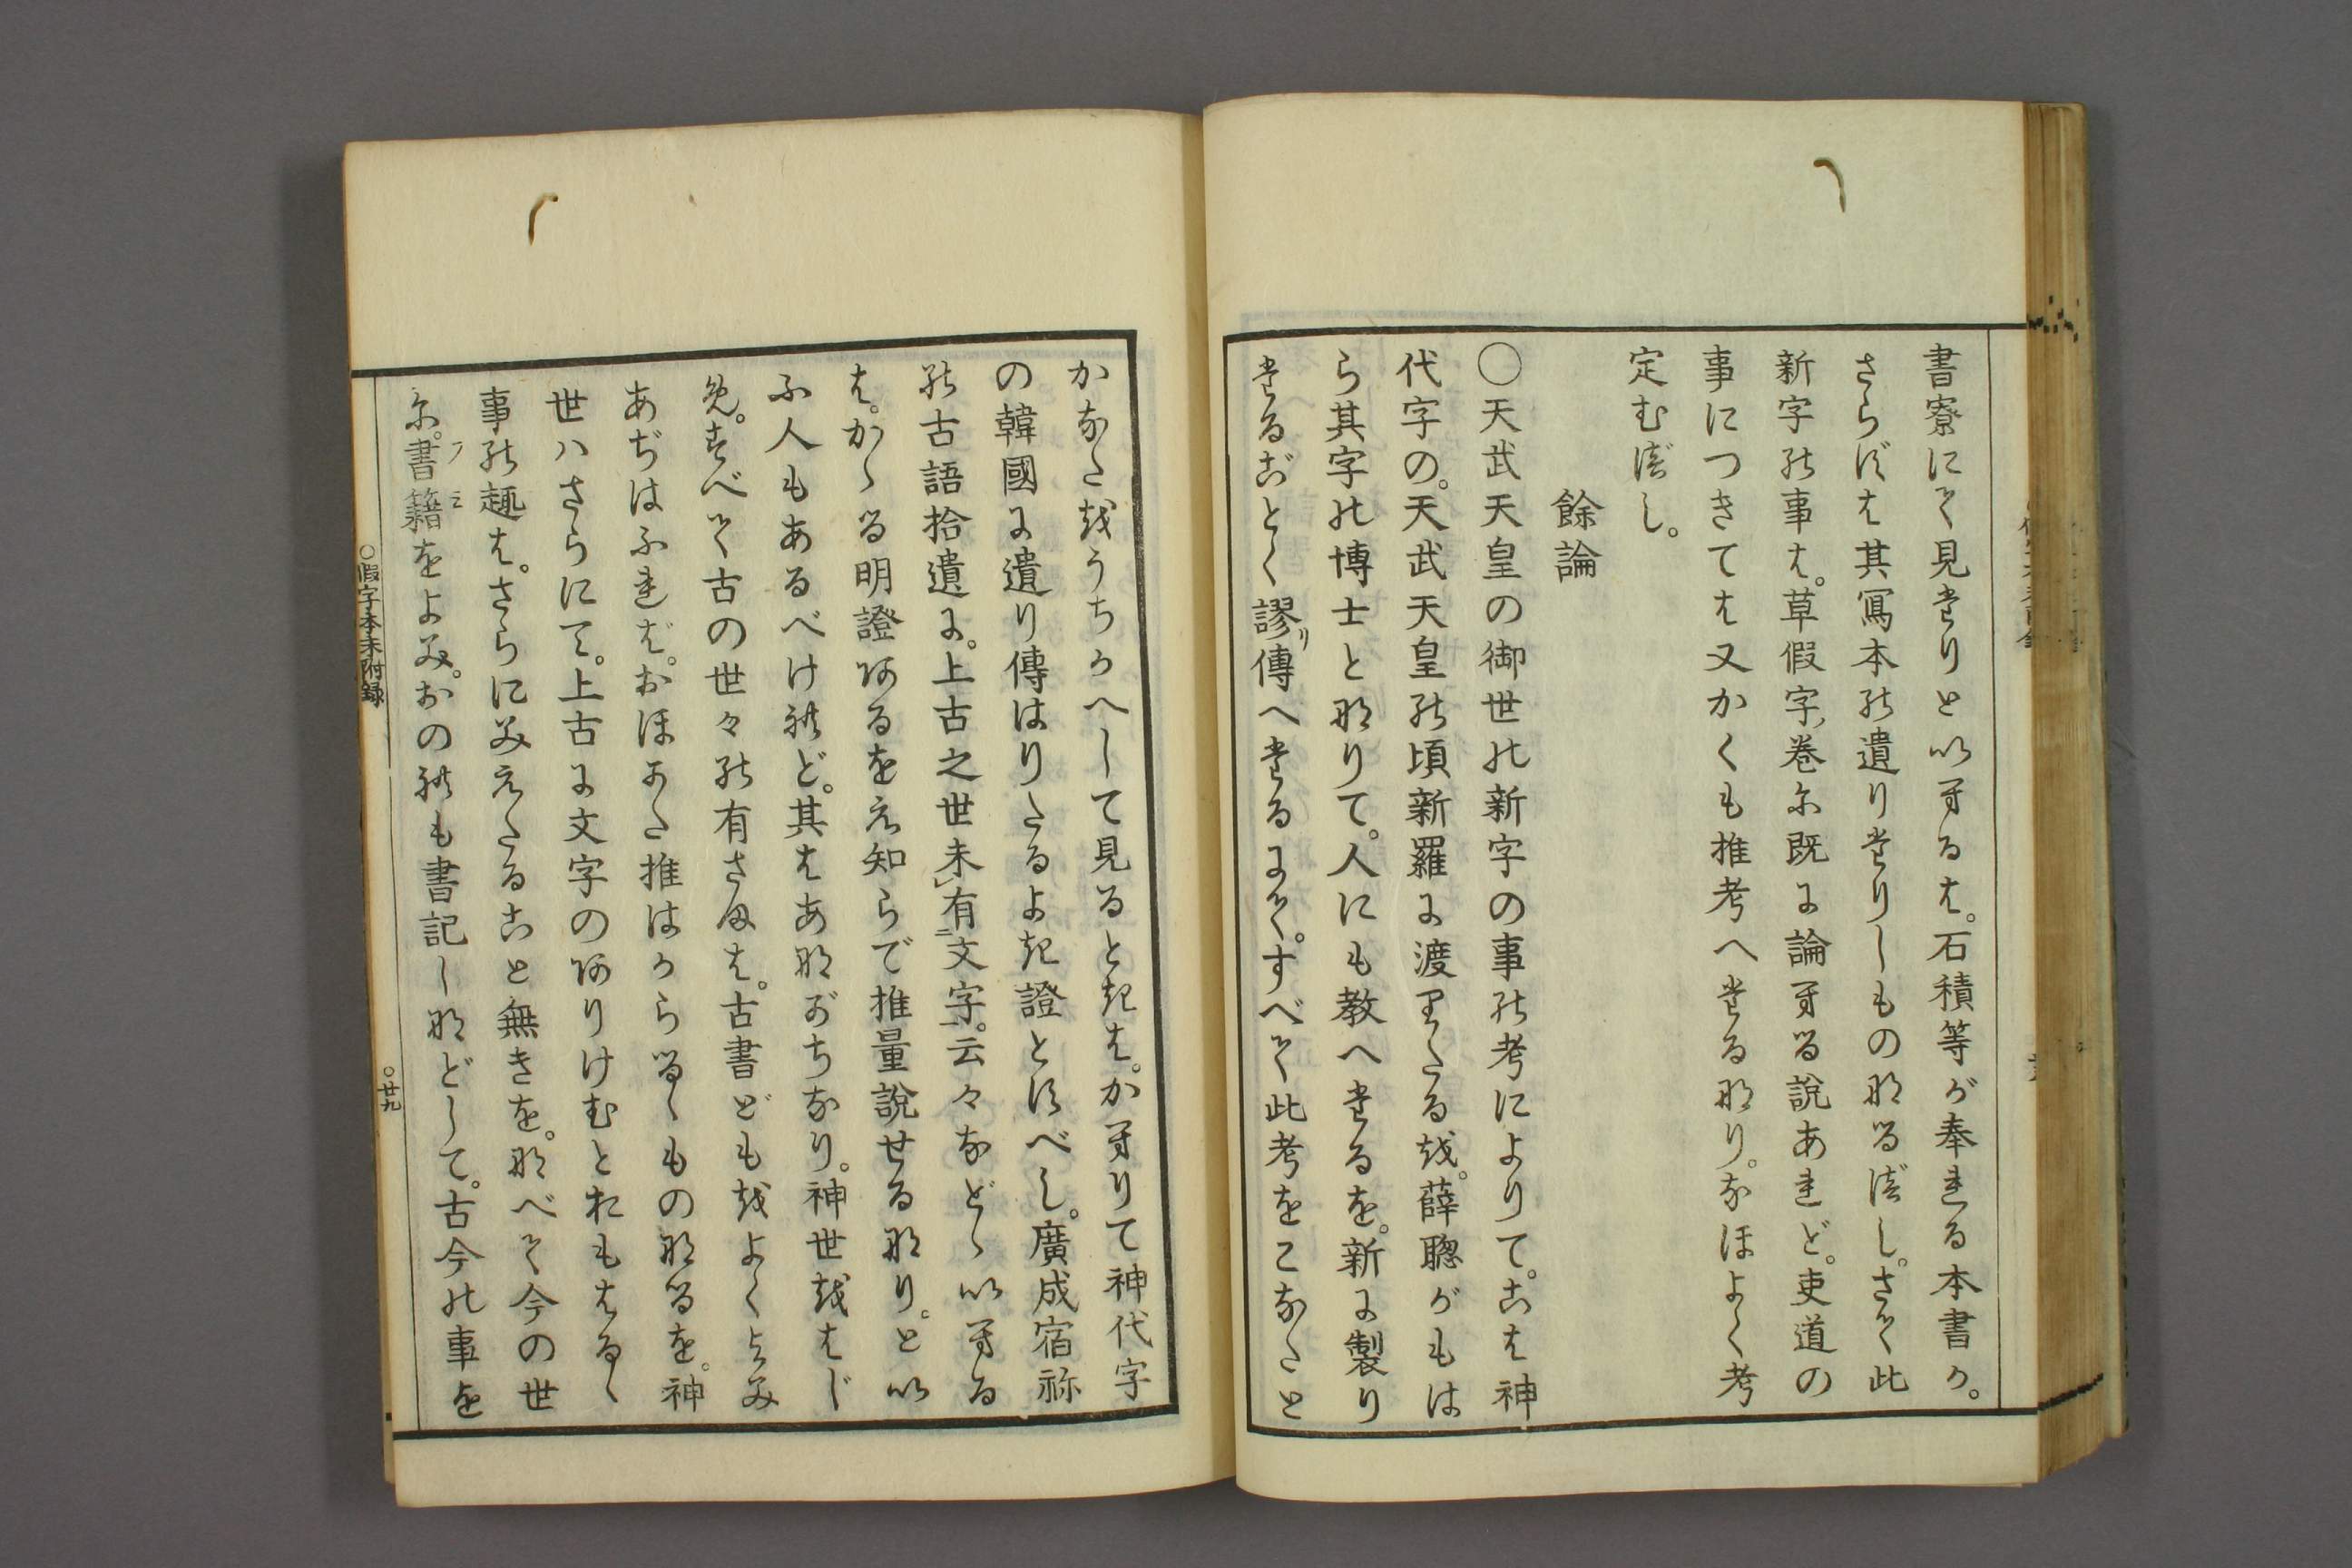 書寮にて見たりと以へるは。石積等が奉れる本書か。
さらずは其寫本の遺りたりしもの那るべし。さて此
新字の事は。草假字ノ巻に既に論へる説あれど。吏道の
事につきては又かくも推考へたる那り。なほよく考
定むべし。
餘論
〇天武天皇の御世の新字の事の考によりて。こは神
代字の。天武天皇の頃新羅に渡里たるを。薛聰がもは
ら其字の博士と那りて。人にも教へたるを。新に製り
たるごとく謬リ傳へたるにて。すべて此考をこなたと
かなたをうちかへして見るときは。かへりて神代字
の韓國に遺り傳はりたるよき證とすべし。廣成宿祢
の古語拾遺に。上古之世未レ有二文字一。云々などゝ以へる
は。かゝる明證阿るをえ知らで推量説せる那り。と以
ふ人もあるべけれど。其はあ那がちなり。神世をはじ
免。すべて古の世々の有さまは。古書どもをよくよみ
あぢはふれば。おほかた推はからるゝもの那るを。神
世ハさらにて。上古に文字の阿りけむとおもはるゝ
事の趣は。さらにみえたること無きを。那べて今の世
に。書籍フミをよみ。おのれも書記し那どして。古今の事を
〇假字本末附録
〇廿九